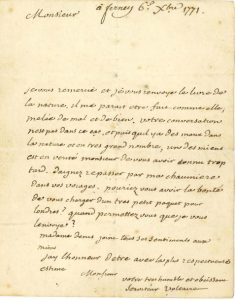 à ferney 6e Xbre 1771
Monsieur
je vous remercie et je renvoye le livre de
la nature, il me parait être fait comme elle,
mêlé de mal et de bien. votre conversation
n'est pas dans ce cas, et puisqu'il y a des maux dans
la nature et en très grand nombre, un des miens
est en vérité monsieur de vous avoir trop
tard. Daignez repasser par ma chaumière
dans vos voiages. pouriez vous avoir la bonté
de vous charger d'un très petit paquet pour
londres? quand permettez vous que je vous
l'envoye?
madame denis joint tous ses sentiments aux
miens
jay l'honneur d'etre avec la plus respectueuse
estime
Monsieur
votre très humble et obeissant
serviteur voltaire